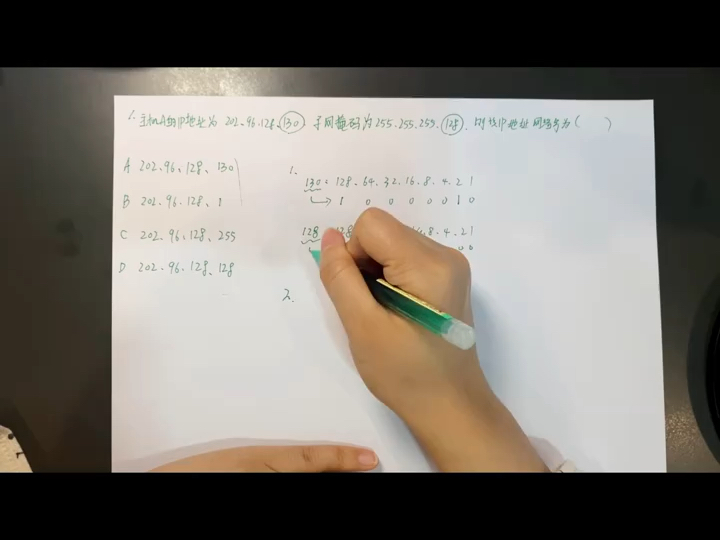 1. 主机A的IP地址为 202.96.128.130. 子网掩码为255.255.255.128. 则该IP地址网络号为( )
A 202.96.128.130
B 202.96.128.1
C 202.96.128.255
D 202.96.128.128
1.
130 = 128.64.32.16.8.4.2 1
1 0 0 0 0 0 1 0
128
8.4.2 1
0 0
2.